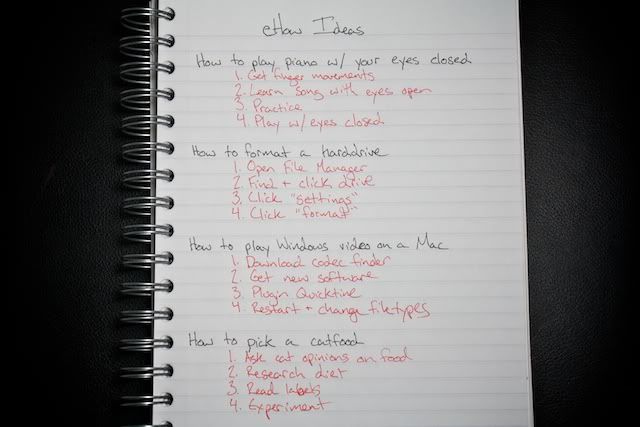 eHow Ideas
How to play piano w/ your eyes closed
1. Get finger movements
2. Learn song with eyes open
3. Practice
4. Play w/ eyes closed
How to format a harddrive
1. Open File Manager
2. Find + click drive
3. Click "settings"
4. Click "format"
How to play Windows video on a Mac
1. Download codec finder
2. Get new software
3. Plugin Quicktine
4. Restart + change filetypes
How to pick a catfood
1. Ask cat opinions on food
2. Research diet
3. Read labels
4. Experiment